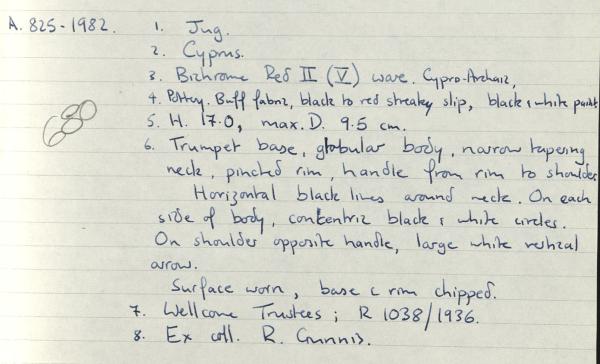 A. 825-1982. 1. Jug.
2. Cyprus.
3. Bichrome Red II (V) ware. Cypro-Archaic,
4. Pottery. Buff fabric, black to red streaky slip, black & white paint
5. H. 17.0, max. D. 9.5 cm.
680
6. Trumpet base, globular body, narrow tapering
neck, pinched rim, handle from rim to shoulder
Horizontal black lines around neck. On each
side of body, concentric black & white circles.
On shoulder opposite handle, large white vertical
arrow.
Surface worn, base & rim chipped.
7. Wellcome Trustees; R 1038/1936.
8. Ex coll. R. Gunnis.